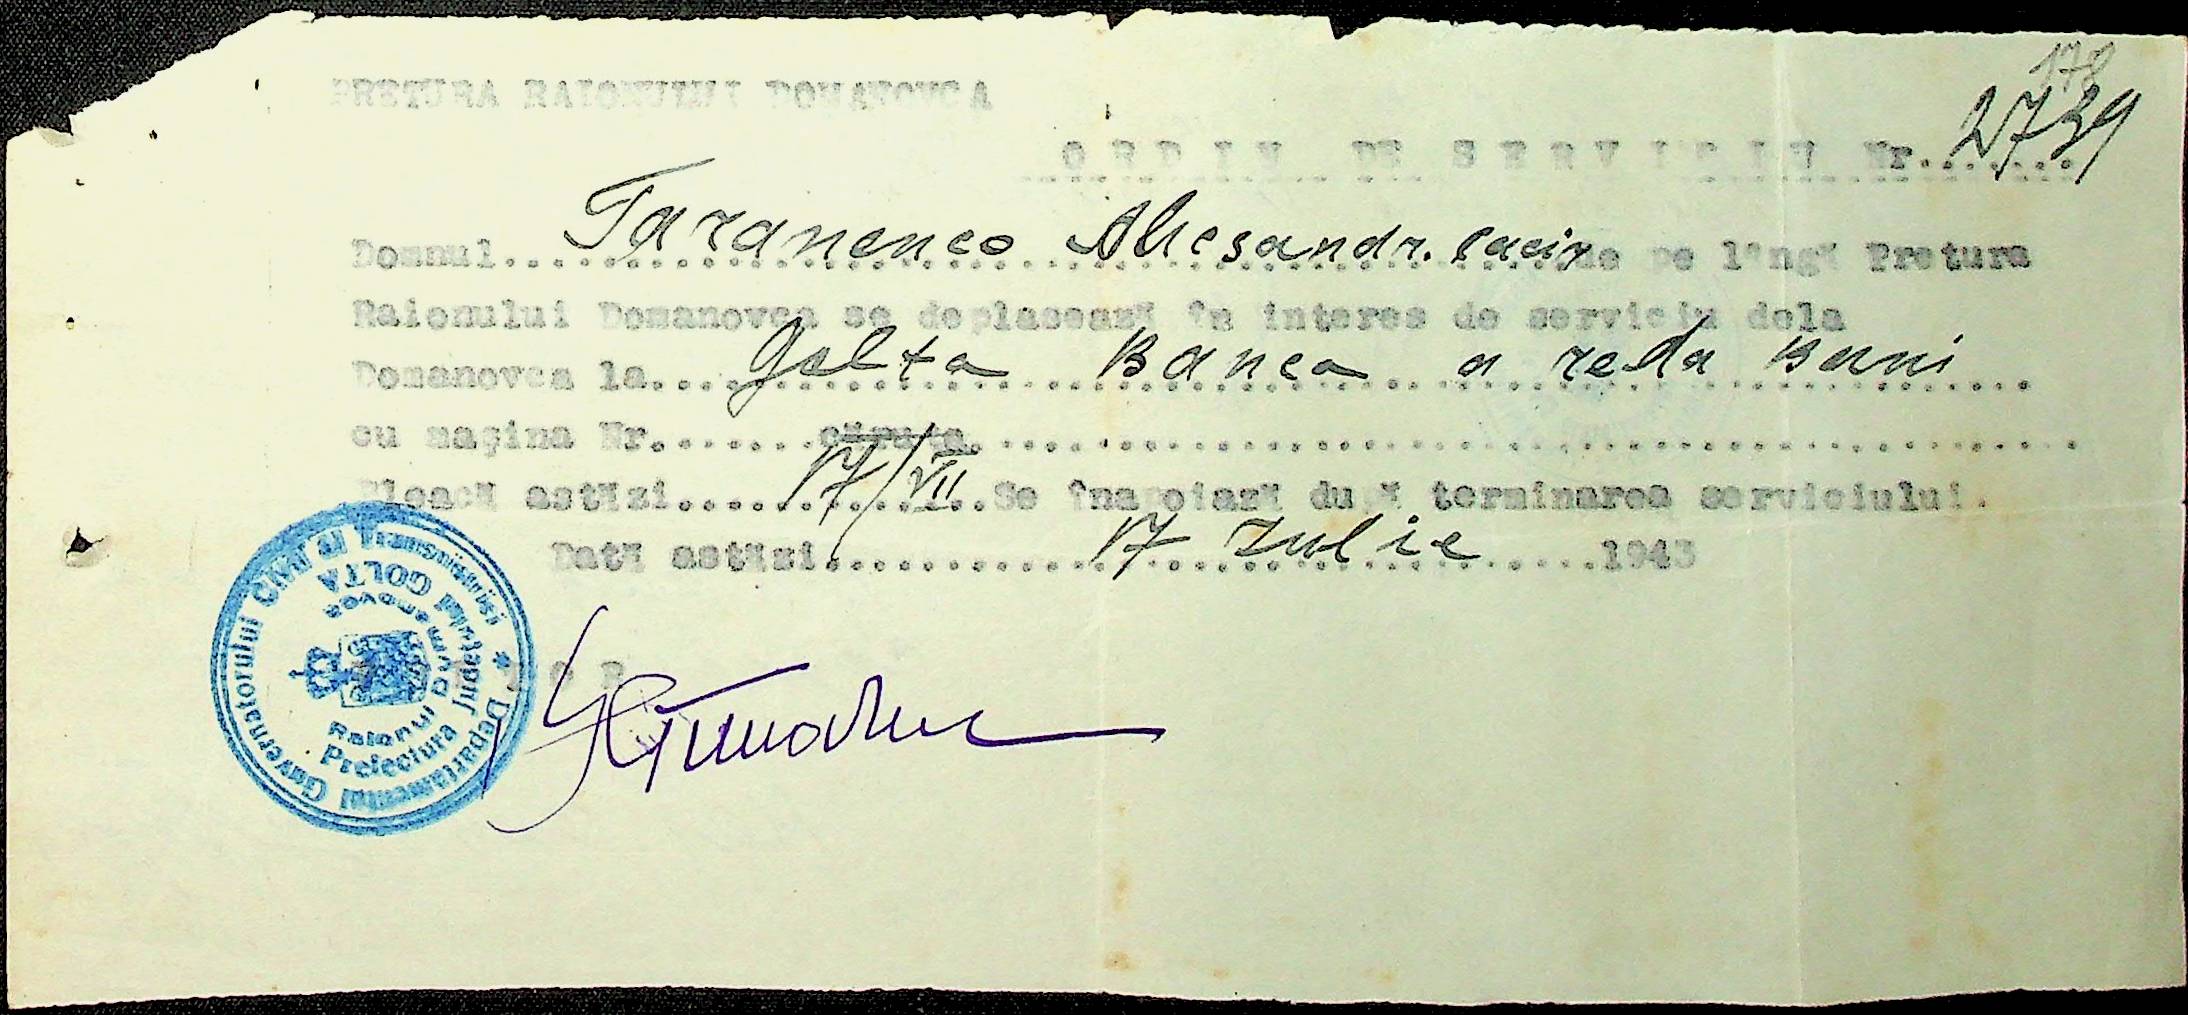 173
PRETURA RAIONULUI DOMANOVCA
2739
ORDIN DE SERVICIU Nr.......
Domnul Taranenco Alicsandr. casir de pe lîngă Pretura
Raionului Domanovca se deplasează în interes de serviciu dela
Domanovca la Golta Banca a reda Bani
cu maşina Nr. căruţa
Pleacă astăzi 17/VII Se înapoiază după terminarea serviciului.
Dată astăzi 17 Iulie 1943
PRETOR
Guvernatorului Civil al Transnistriei * Departamentul
Prefectura Judeţului GOLTA
Raionul Domanovca